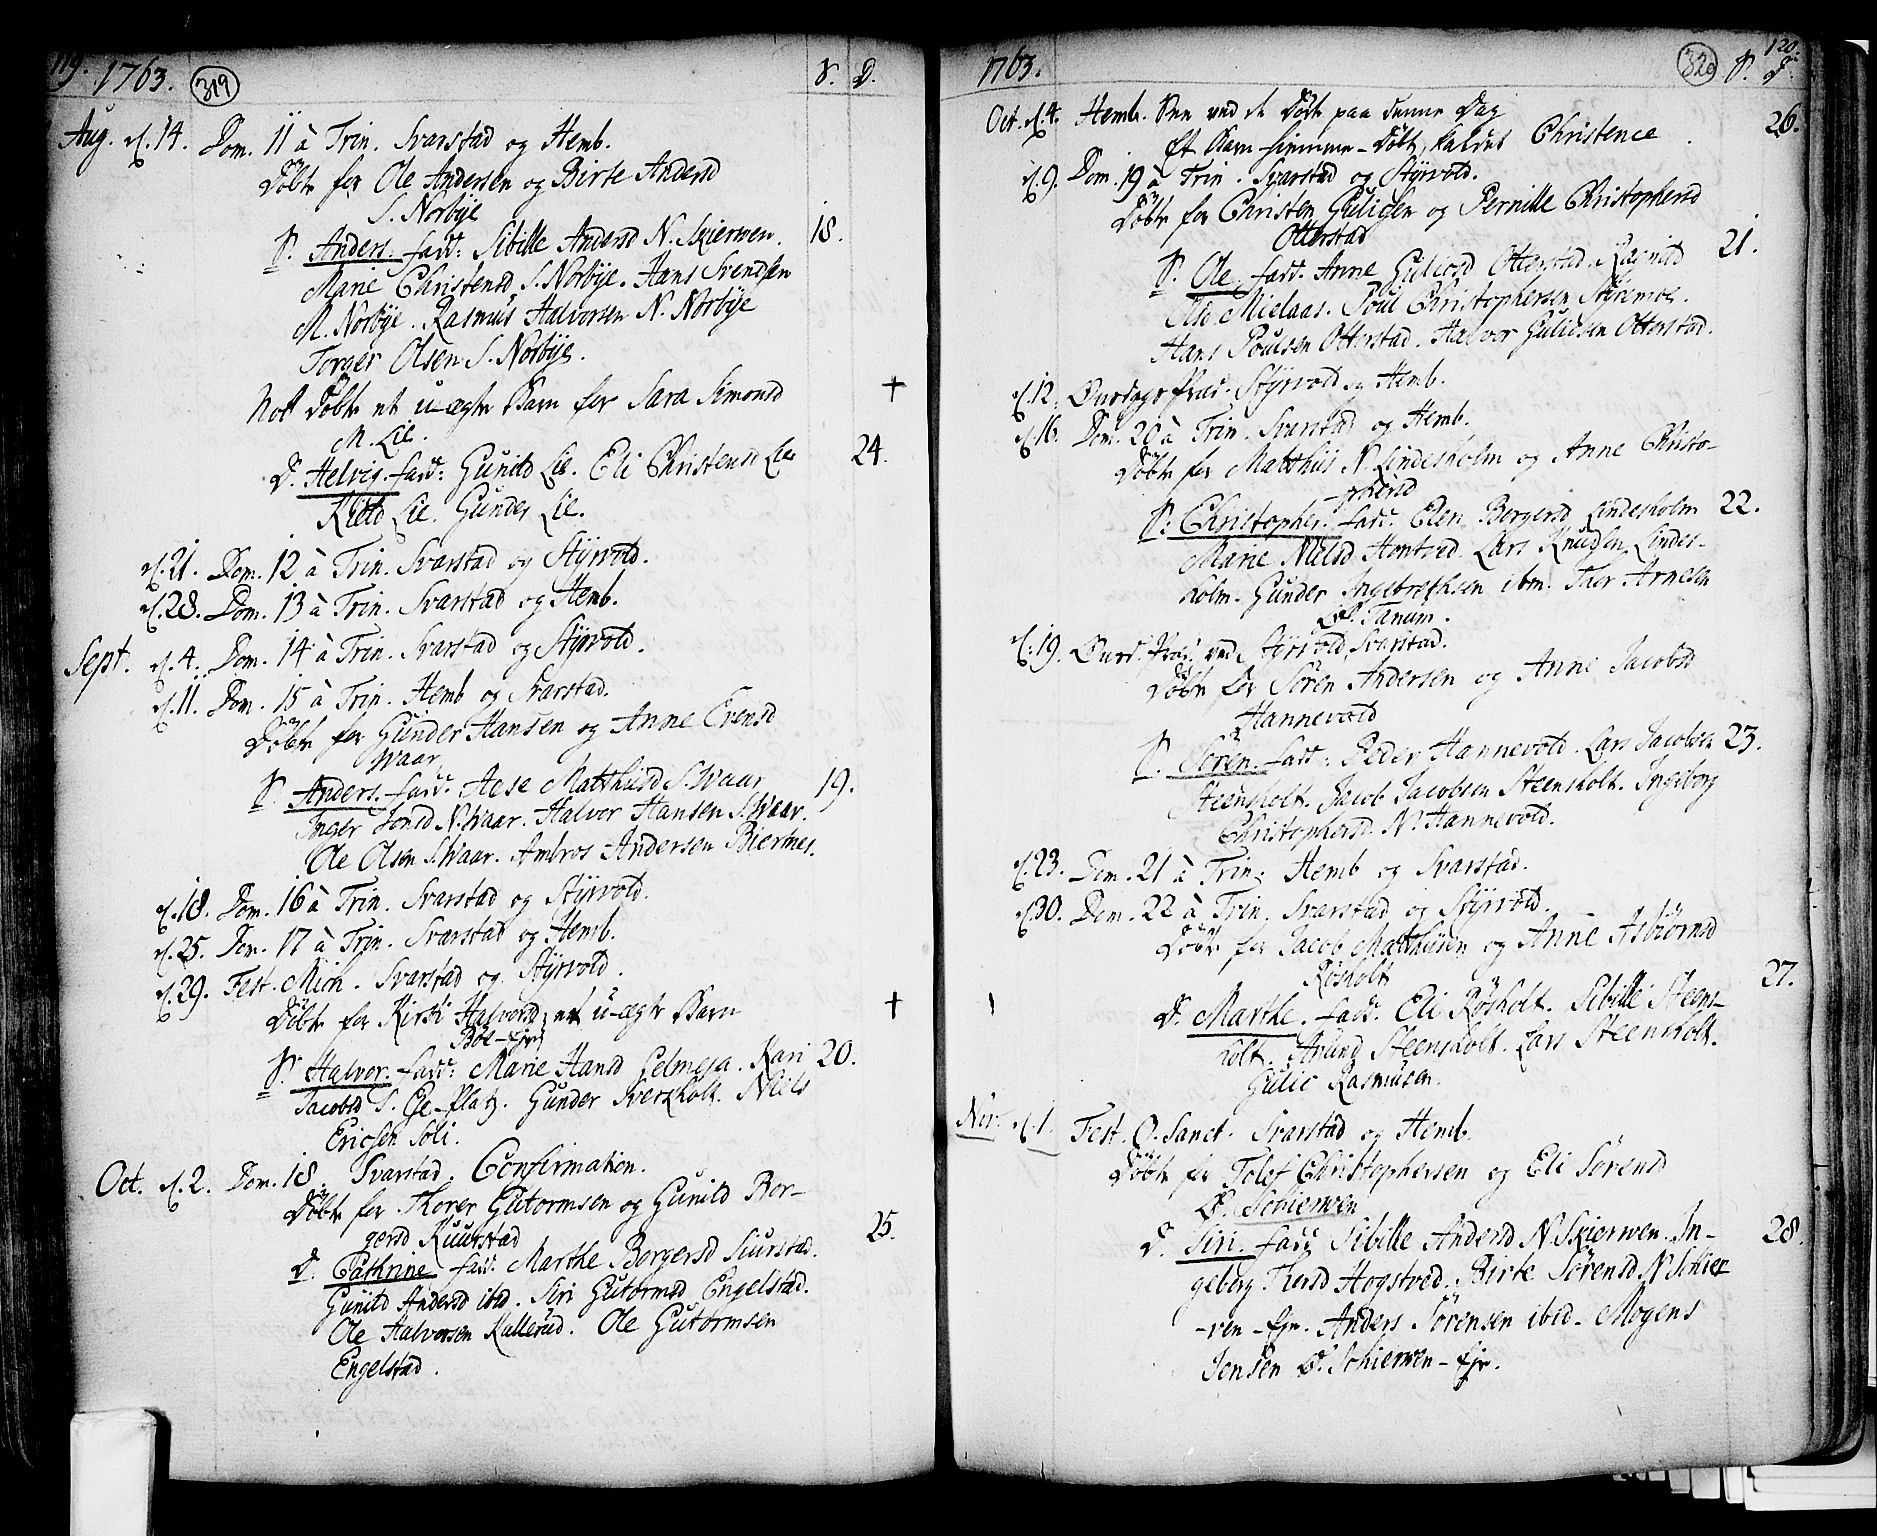 119. 1763. 319 S. D.
Aug. d. 14. Dom. 11 à Trin. Svarstad og Hemb.
Döbt for Ole Andersen og Birte Andersd
S. Norbÿe
S. Anders. fadd: Sibille Andersd N. Skierwen. 18.
Marie Christensd S. Norbÿe. Hans Svendsen
M. Norbÿe. Rasmus Halvorsen N. Norbÿe
Torger Olsen S. Norbÿe.
Not Döbt et u-ægte Barn for Sara Simonsd +
M. Lie.
D. Helvig. fadd: Gunild Lie. Eli Christensd Lie 24.
Kield Lie. Gunder Lie.
d. 21. Dom. 12 à Trin. Svarstad og Stÿrvold.
d. 28. Dom. 13 à Trin. Svarstad og Hemb.
Sept. d. 4. Dom. 14 à Trin. Svarstad og Stÿrvold.
d. 11. Dom. 15 à Trin. Hemb og Svarstad.
Döbt for Gunder Hansen og Anne Evensd
Waar
S. Anders. fadd: Aese Matthisd S. Waar 19.
Inger Jonsd N. Waar. Halvor Hansen S. Waar.
Ole Olsen S. Waar. Ambros Andersen Biermes.
d. 18. Dom. 16 à Trin. Svarstad og Stÿrvold.
d. 25. Dom. 17 à Trin. Svarstad og Hemb.
d. 29. Fest. Mich. Svarstad og Stÿrvold.
Döbt for Kirsti Halvorsd et u-ægte Barn +
Böe-Eje
S. Halvor. fadd: Marie Hansd Gelmeja. Kari 20.
Jacobsd S. Ge-Platz. Gunder Sverkholt. Niels
Ericsen Soli.
Oct. d. 2. Dom. 18. Svarstad. Confirmation.
Döbt for Thorer Gutormsen og Gunild Bor-
gersd Ruurstad
D. Cathrine fadd: Marthe Borgersd Siurstad. 25.
Gunild Andersd ibid. Siri Gutormsd Engelstad.
Ole Halvorsen Kallerud. Ole Gutormsen
Engelstad.
1763. 320 120. S. D.
Oct. d. 4. Hemb. Præd ved de Döbte paa denne Dag
Et Barn hiemme-Döbt, kaldet Christence 26.
d. 9. Dom. 19 à Trin. Svarstad og Stÿrvold.
Döbt for Christen Gulicsen og Pernille Christophersd
Otterstad
S. Ole fadd. Anne Gulicsd Otterstad. Ragnild 21.
Mielaas. Poul Christophersen Styremoe.
Hans Poulsen Otterstad. Halvor Gulicsen Otterstad.
d. 12. Onsdags Præd. Stÿrvold og Hemb.
d. 16. Dom. 20 à Trin. Svarstad og Hemb.
Döbt for Matthis N. Lindesholm og Anne Christo-
phersd
S: Christopher. fadd: Elen Borgersd Lindesholm 22.
Marie Nielsd Hontved. Lars Knudsen Lindes-
holm. Gunder Ingebrethsen ibm. Thor Arnesen
Tanum.
d. 19. Onsd. Præd. ved Stÿrvold, Svarstad.
Döbt for Sören Andersen og Anne Jacobsd
Hannevold
S. Sören. fadd: Peder Hannevold. Lars Jacobsen 23.
Steensholt. Jacob Jacobsen Steensholt. Ingeborg
Christophersd N. Hannevold.
d. 23. Dom. 21 à Trin. Hemb og Svarstad.
d. 30. Dom. 22 à Trin. Svarstad og Stÿrvold.
Döbt for Jacob Matthisen og Anne Asbiörnsd
Rösholt 27.
D. Marthe. fadd. Eli Rösholt. Sibille Steens-
holt. Arund Steensholt. Lars Steensholt.
Gulic Rasmusen.
Nov. d. 1. Fest. O. Sanct. Svarstad og Hemb.
Döbt for Tolef Christophersen og Eli Sörensd
Ø. Schierwen
D. Siri. fadd Sibille Andersd N. Skierwen. In- 28.
geborg Thorsd Hogstved. Birte Sörensd N Schier
-ven-Eje. Anders Sörensen ibid. Mogens
Jensen Ø. Schierwen-Eje.